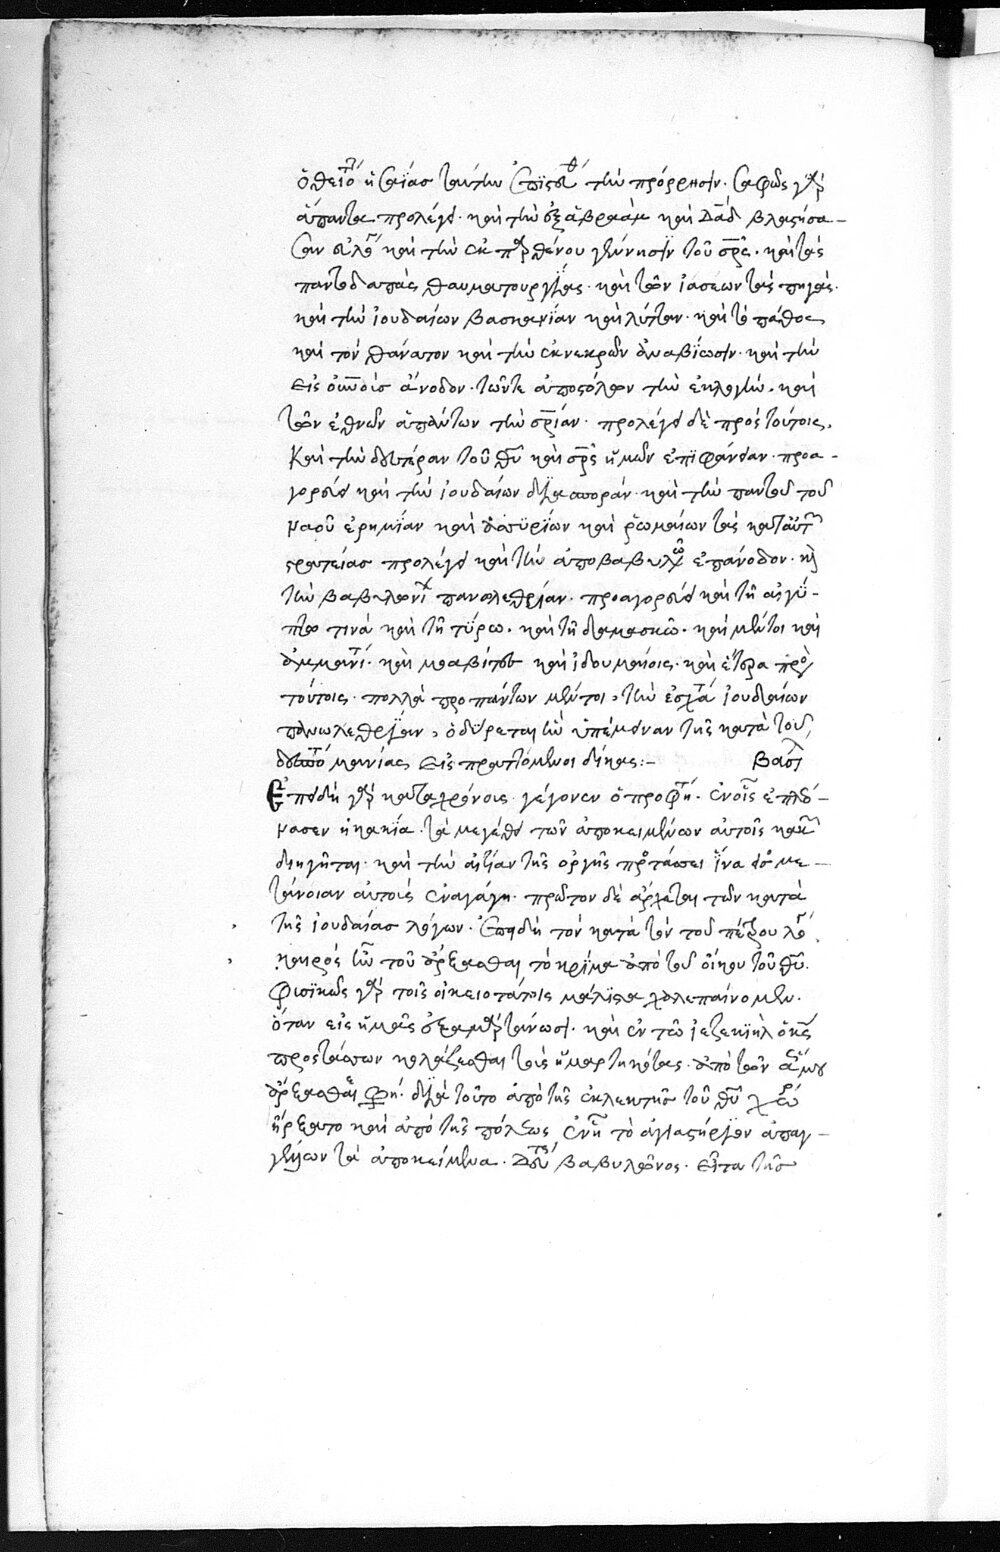 ὁ θειότ ἡσαΐας ταύτην ἐπιστ τὴν πρόρρησιν. σαφῶς γὰρ
ἅπαντα προλέγει. καὶ τὴν ἐξ ἀβραὰμ καὶ δαδ βλαστήσα-
σαν καὶ τὴν ἐκ παρθένου γέννησιν τοῦ σρς. καὶ τὰς
παντοδαπὰς θαυματουργίας. καὶ τῶν ἰάσεων τὰς πηγάς.
καὶ τὴν ἰουδαίων βασκανίαν καὶ λύτταν. καὶ τὸ πάθος
καὶ τὸν θάνατον καὶ τὴν ἐκ νεκρῶν ἀναβίωσιν. καὶ τὴν
εἰς οὐνοὺς ἄνοδον. τῶν τε ἀποστόλων τὴν ἐκλογήν. καὶ
τῶν ἐθνῶν ἁπάντων τὴν σρίαν. προλέγει δὲ πρὸς τούτοις.
καὶ τὴν δευτέραν τοῦ θυ καὶ σρς ἡμῶν ἐπιφάνειαν. προα-
γορεύει καὶ τὴν ἰουδαίων διασποράν. καὶ τὴν παντὸς τοῦ
ναοῦ ἐρημίαν καὶ ἀσσυρίων καὶ ῥωμαίων τὰς κατ αὐτ
στρατείας προλέγει καὶ τὴν ἀπὸ βαβυλῶ ἐπάνοδον. καὶ
τὴν βαβυλωνι πανωλεθρίαν. προαγορεύει καὶ τῇ αἰγύ-
πτω τινὰ καὶ τῇ τύρω. καὶ τῇ δαμασκῶ. καὶ μέντοι καὶ
ἀμμανίτ. καὶ μωαβίταις καὶ ἰδουμαίοις. καὶ ἕτερα πρὸ
τούτοις. πολλὰ πρὸ πάντων μέντοι, τὴν ἐσχάτ ἰουδαίων
πανωλεθρίαν, ὀδύρεται ἣν ὑπέμειναν τῆς κατὰ τοῦ
δεσπότ μανίας εἰσπραττόμενοι δίκας:- βασιλ
Ἐπειδὴ γὰρ κατὰ χρόνους γέγονεν ὁ προφήτ. ἐν οἷς ἐπλεό-
νασεν ἡ κακία. τὰ μεγέθει τῶν ἀποκειμένων αὐτοῖς κακ
διηγῆται. καὶ τὴν αἰτίαν τῆς ὀργῆς προτάσσει ἵνα εἰς με-
τάνοιαν αὐτοὺς ἐναγάγη. πρῶτον δὲ ἄρχεται τῶν κατὰ
τῆς ἰουδαίας λόγων. ἐπειδὴ τὸν κατὰ τὸν τοῦ πέτρου λό
καιρὸς ἦν τοῦ ἄρξασθαι τὸ κρίμα ἀπὸ τοῦ οἴκου τοῦ θυ.
φυσικῶς γὰρ τοῖς οἰκειοτάτοις μάλιστα χαλεπαίνομεν.
ὅταν εἰς ἡμᾶς ἐξαμαρτάνωσι. καὶ ἐν τῶ ἰεζεκιὴλ ὁ κς
προστάσσων κολάζεσθαι τοὺς ἡμαρτηκότας. ἀπὸ τῶν ἁγίων μου
ἄρξασθαι φησί. διὰ τοῦτο ἀπὸ τῆς ἐκλεκτῆς τοῦ θυ χώρ
ἤρξατο καὶ ἀπὸ τῆς πόλεως ἐν ἧ τὸ ἁγιαστήριον ἀπαγ-
γέλλων τὰ ἀποκείμενα. βαβυλῶνος. εἶτα τῆς